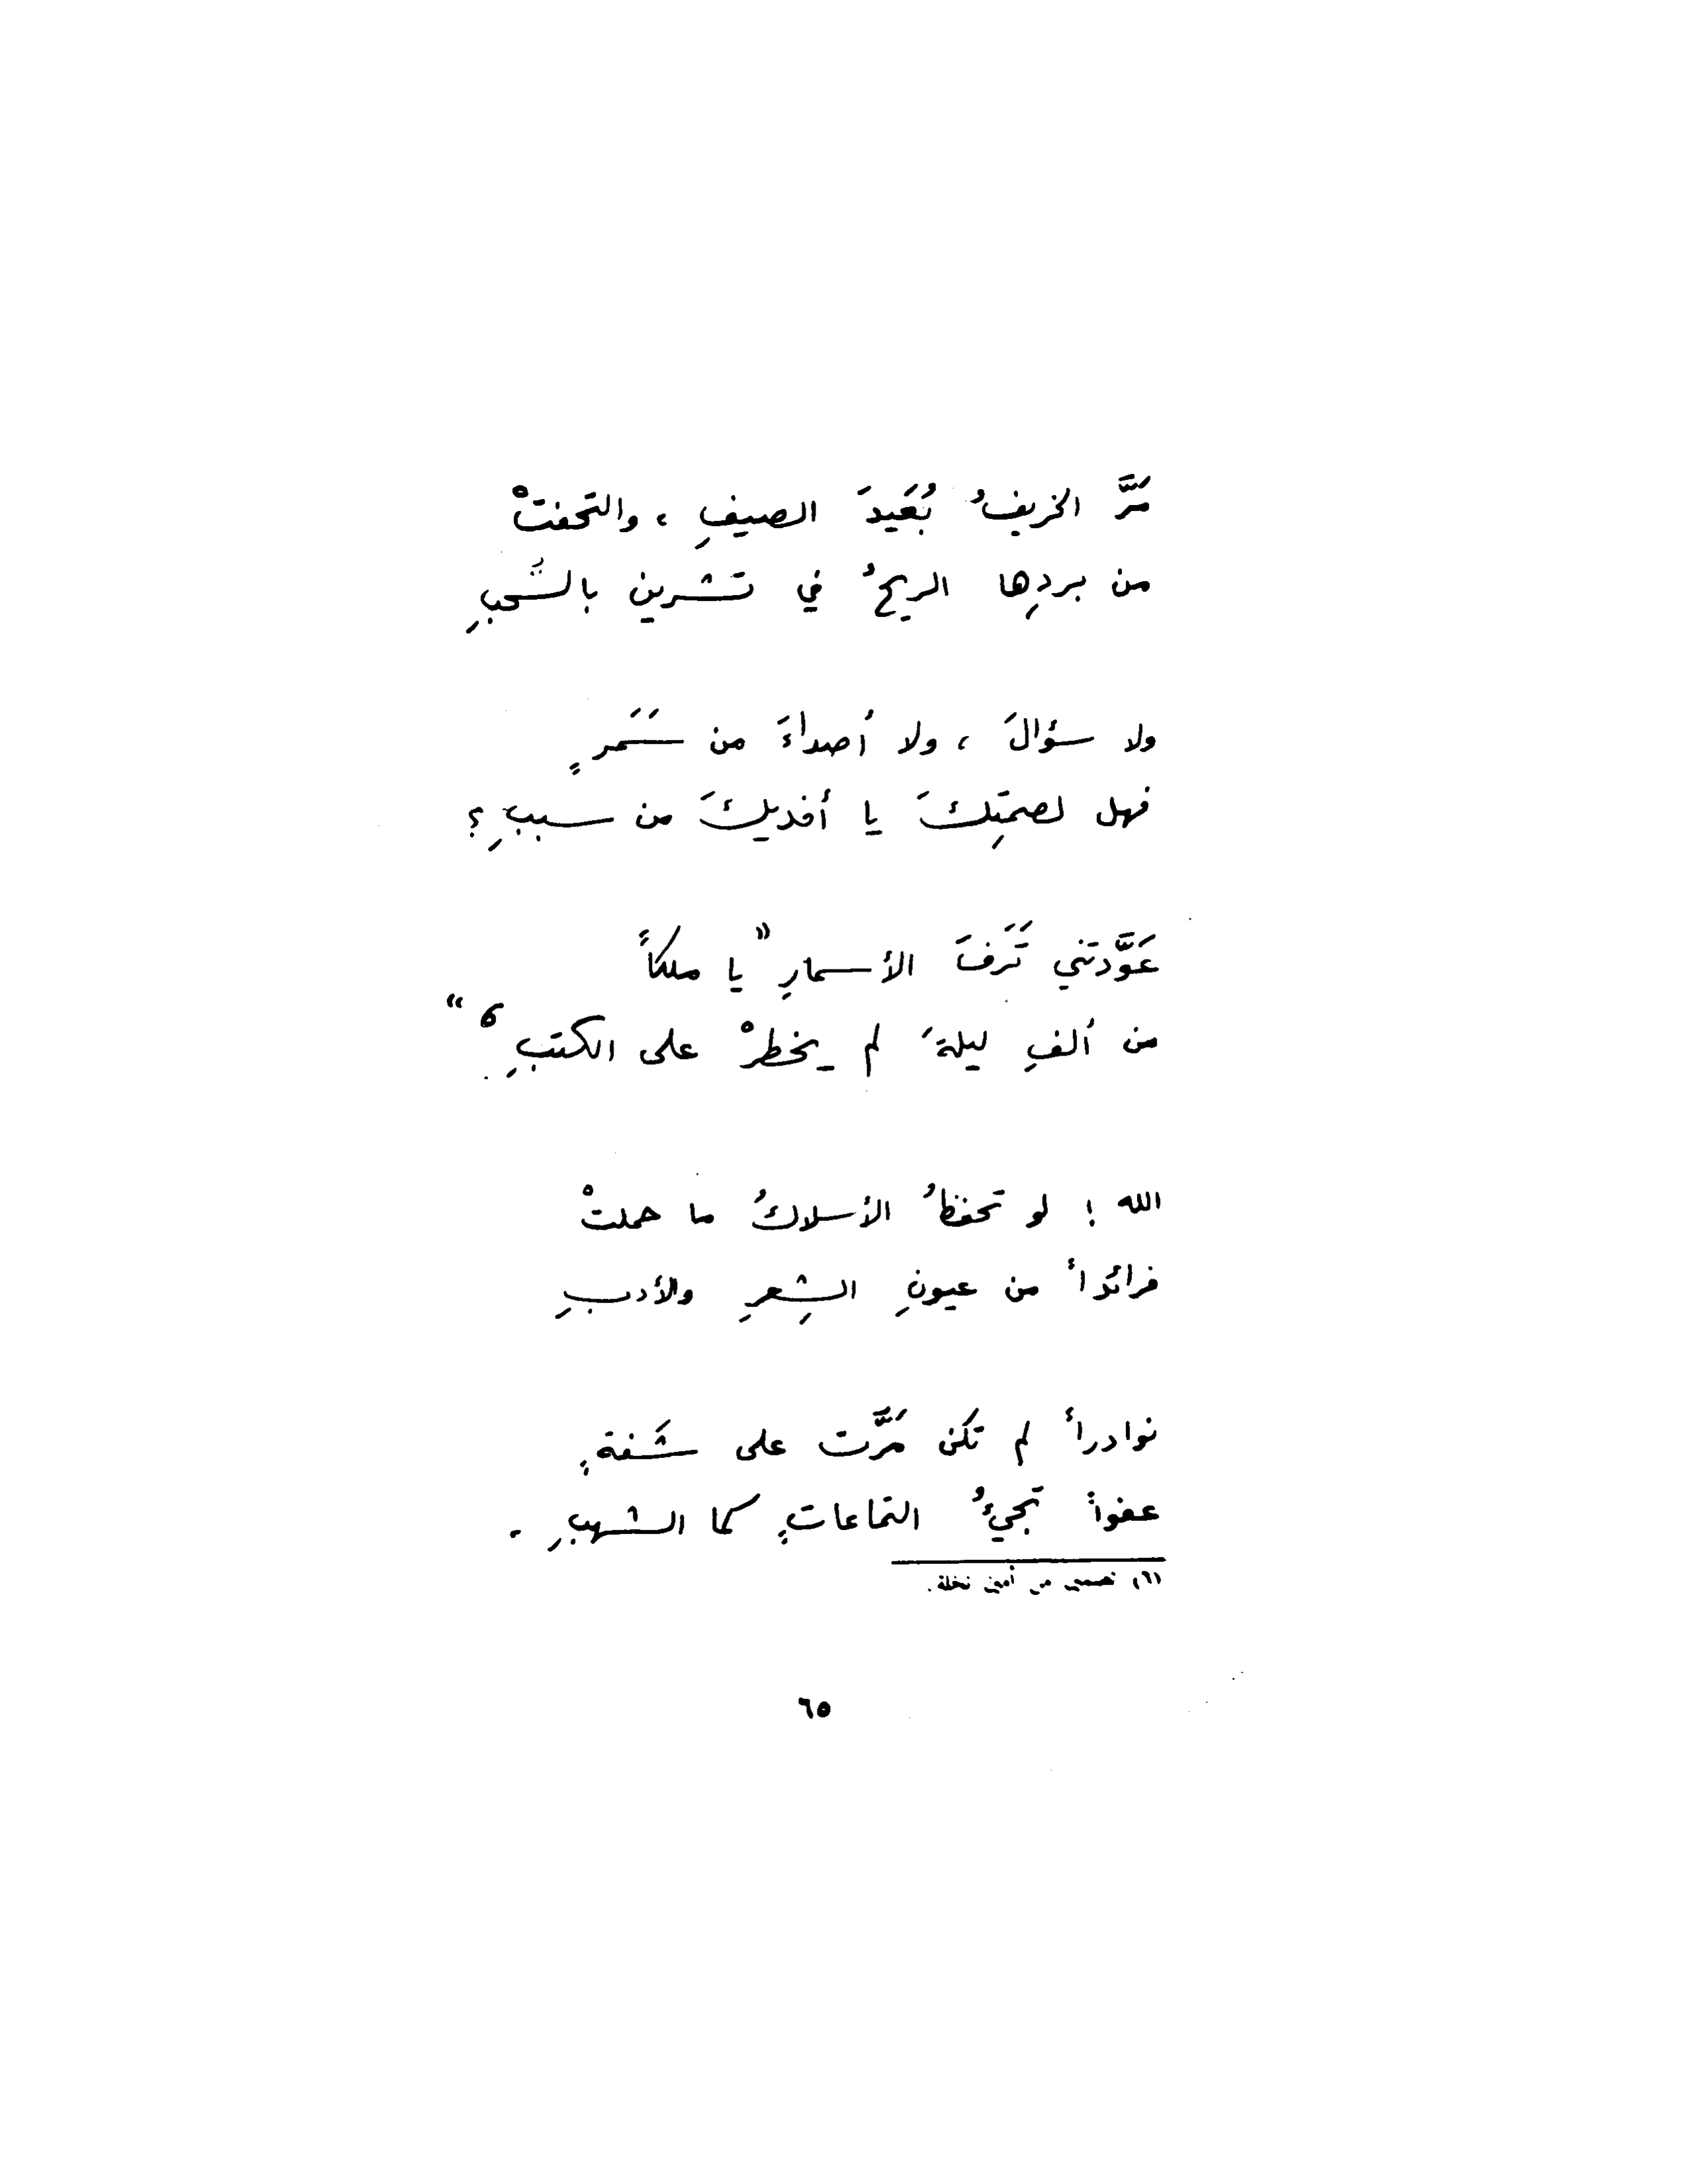 مَرَّ الخريفُ بُعَيدَ الصيفِ ، والتحفتْ
من بردِها الريحُ في تشرين بالسُّحبِ
ولا سؤالَ ، ولا أصداءَ من سَمَرٍ
فهل لصمتِكَ يا أفديكَ من سببِ ؟
عَوَّدتني تَرَفَ الأسمارِ " يا ملكاً
من ألفِ ليلةَ لم يخطرْ على الكتبِ ٦ "
الله ! لو تحفظُ الأسلاكُ ما حملتْ
فرائداً من عيونِ الشِعرِ والأدبِ
نوادراً لم تكن مَرَّت على شَفةٍ
عفواً تجيءُ التماعاتٍ كما الشهبِ .
(٦) تضمين من أمين نخلة .
٦٥